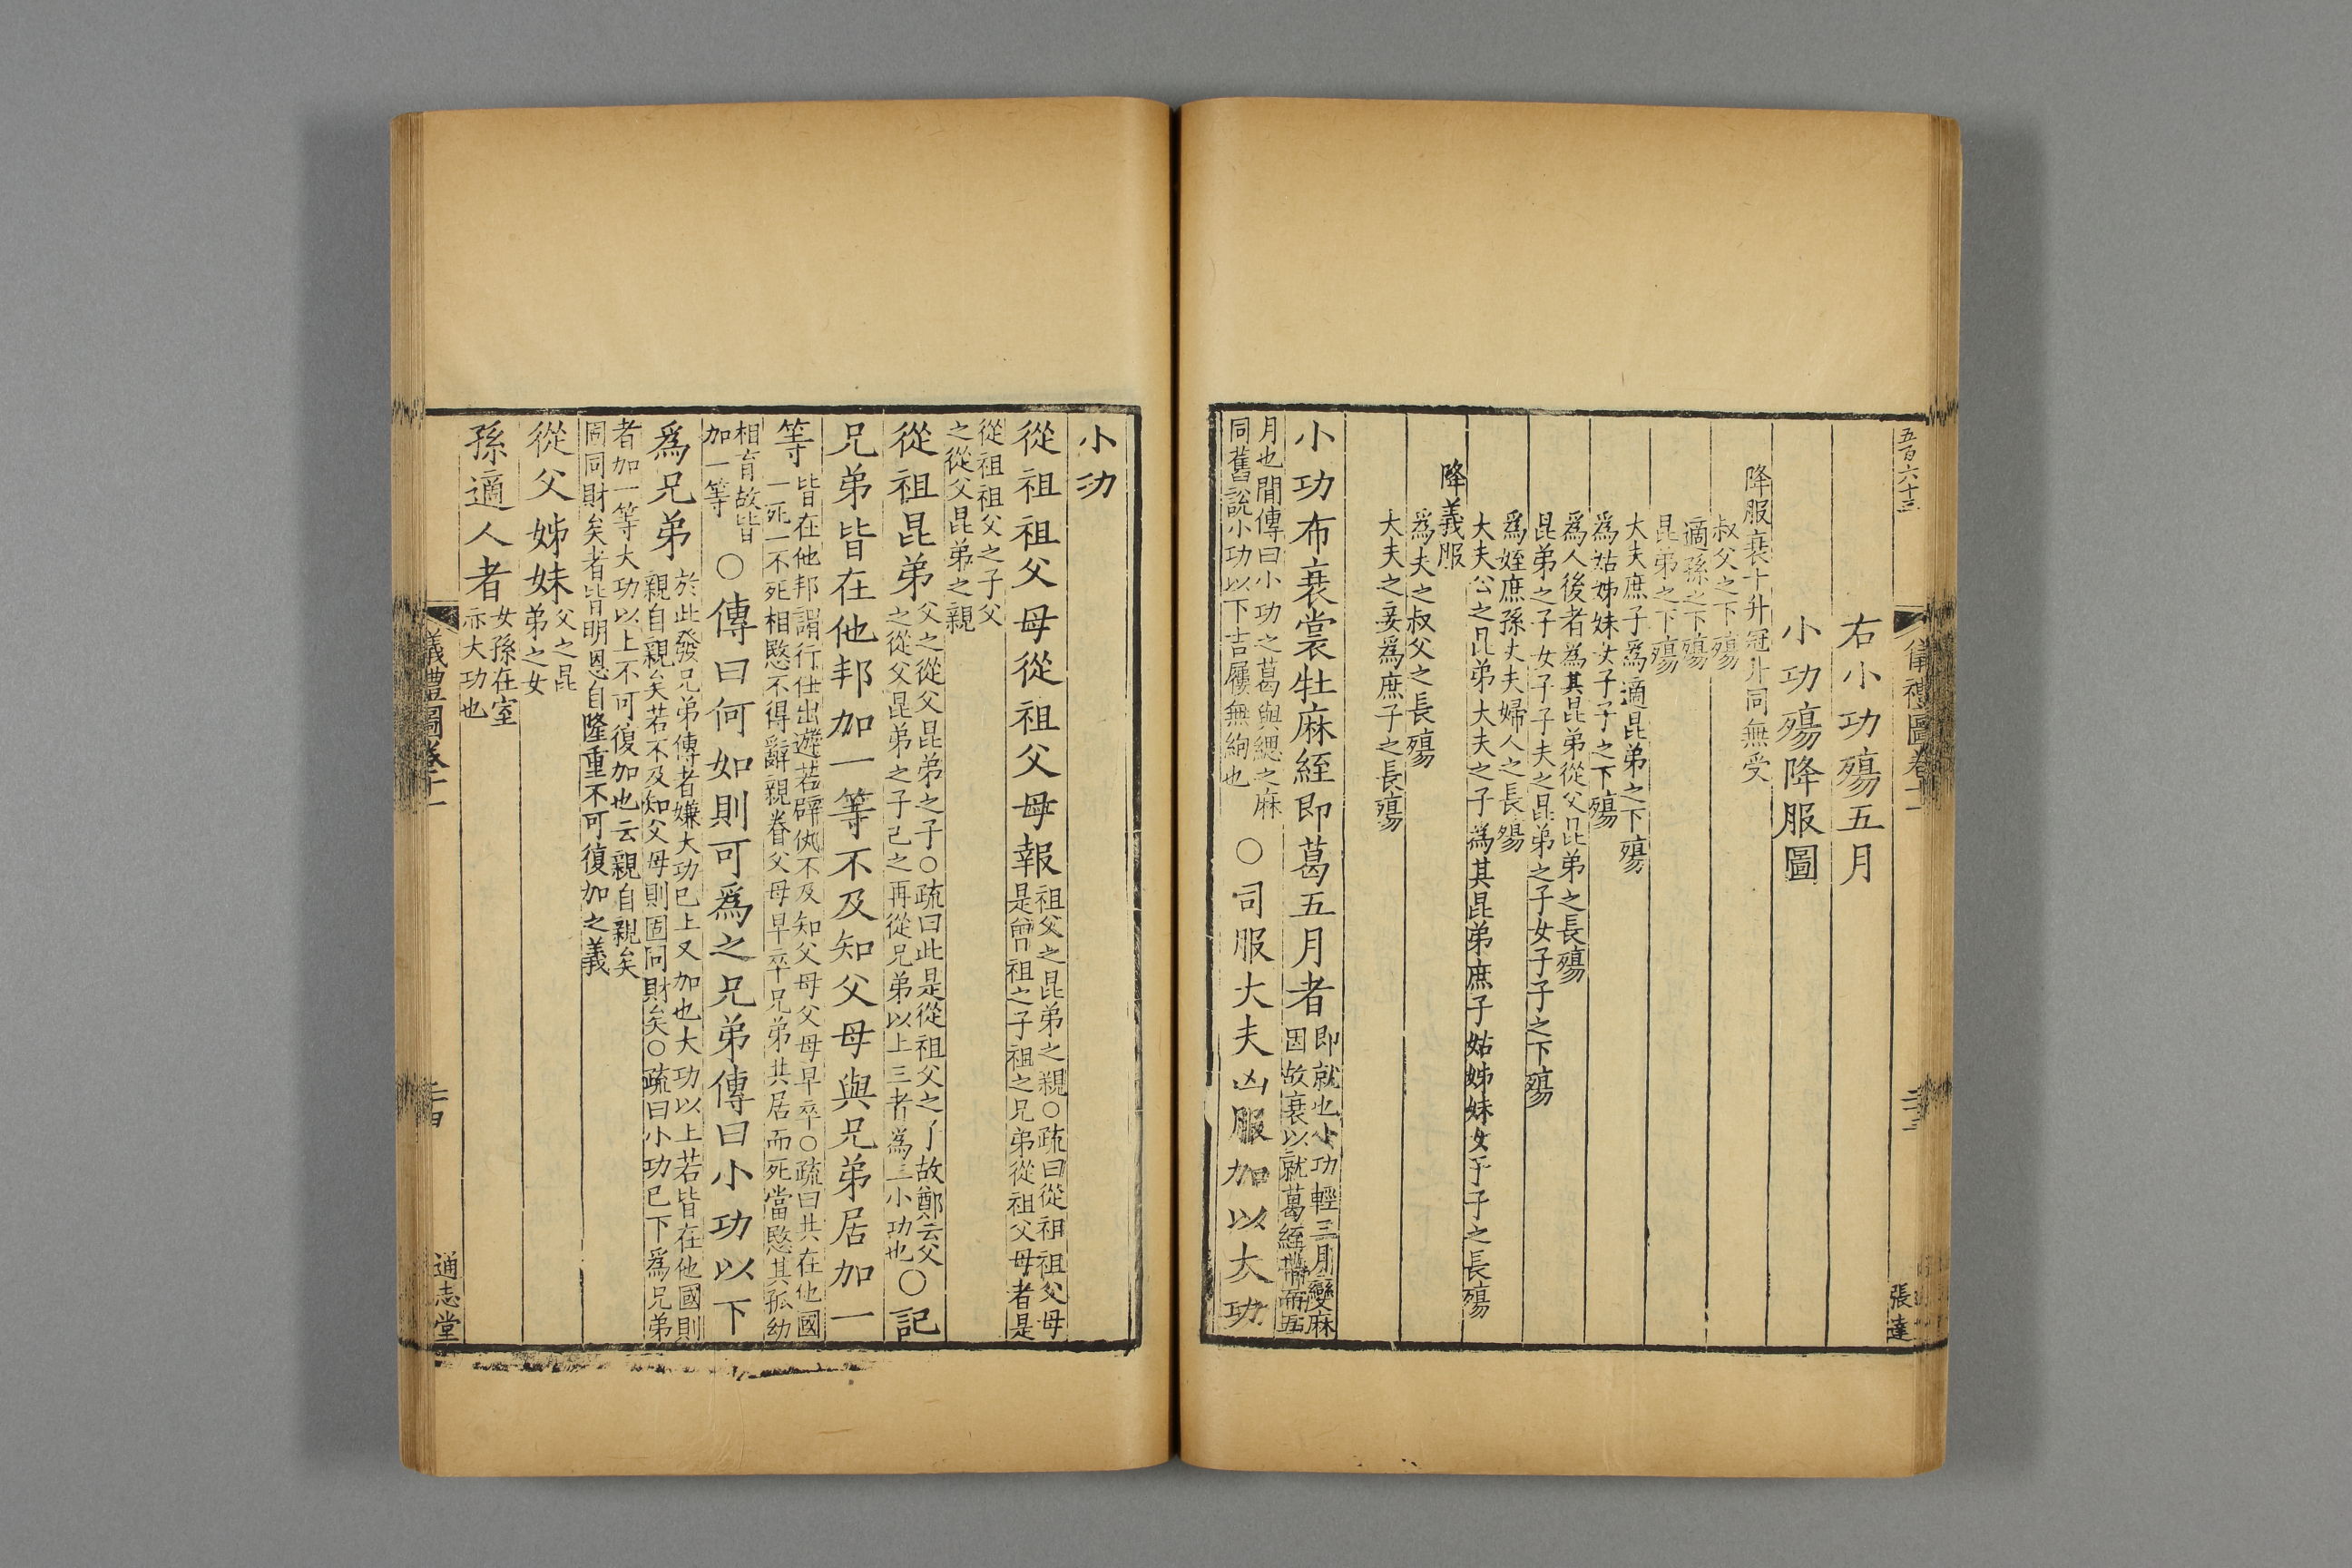 五百六十三
儀禮圖卷十一
二十三
張達
右小功殤五月
小功殤降服圖
降服衰十升冠升同無受
叔父之下殤
適孫之下殤
昆弟之下殤
大夫庶子爲適昆弟之下殤
爲姑姊妹女子子之下殤
爲人後者爲其昆弟從父昆弟之長殤
昆弟之子女子子夫之昆弟之子女子子之下殤
爲姪庶孫丈夫婦人之長殤
大夫公之昆弟大夫之子爲其昆弟庶子姑姊妹女子子之長殤
降義服
爲夫之叔父之長殤
大夫之妾爲庶子之長殤
小功布衰裳牡麻絰即葛五月者
即就也小功輕三月變麻
因故衰以就葛絰帶而五
月也間傳曰小功之葛與緦之麻
同舊說小功以下吉屨無絇也
○司服大夫凶服加以大功
小功
從祖祖父母從祖父母報
祖父之昆弟之親○疏曰從祖祖父母
是曾祖之子祖之兄弟從祖父母者是
從祖祖父之子父
之從父昆弟之親
從祖昆弟
父之從父昆弟之子○疏曰此是從祖父之子故鄭云父
之從父昆弟之子己之再從兄弟以上三者爲三小功也
○記
兄弟皆在他邦加一等不及知父母與兄弟居加一
等
皆在他邦謂行仕出遊若辟仇不及知父母父母早卒○疏曰共在他國
一死一不死相愍不得辭親眷父母早卒兄弟共居而死當愍其孤幼
相育故皆
加一等
○傳曰何如則可爲之兄弟傳曰小功以下
爲兄弟
於此發兄弟傳者嫌大功已上又加也大功以上若皆在他國則
親自親矣若不及知父母則固同財矣○疏曰小功已下爲兄弟
者加一等大功以上不可復加也云親自親矣
固同財矣者皆明恩自隆重不可復加之義
從父姊妹
父之昆
弟之女
孫適人者
女孫在室
亦大功也
儀禮圖卷十一
二十四
通志堂